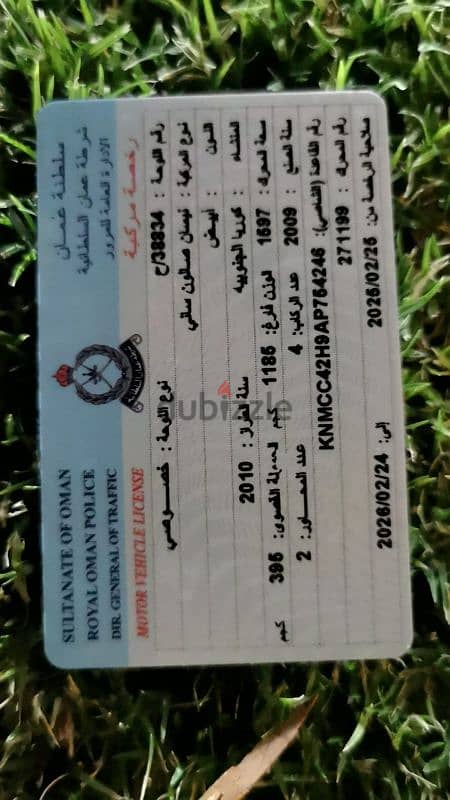 سلطنة عمان
شرطة عمان السلطانية
الإدارة العامة للمرور
رخصة مركبة
SULTANATE OF OMAN
ROYAL OMAN POLICE
DIR. GENERAL OF TRAFFIC
MOTOR VEHICLE LICENSE
رقم اللوحة : 38834/ح نوع اللوحة : خصوصي
نوع المركبة : نيسان صالون سني
اللون : أبيض
المنشأ : كوريا الجنوبية سنة الطراز : 2010
سعة المحرك : 1597 الوزن فارغ : 1185 كجم الحمولة القصوى : 395 كجم
سنة الصنع : 2009 عدد الركاب : 4 عدد المحاور : 2
رقم القاعدة (الشاصي): KNMCC42H9AP754246
رقم المحرك : 271199
صلاحية الرخصة من: 2025/02/25 إلى: 2026/02/24
dubizzle